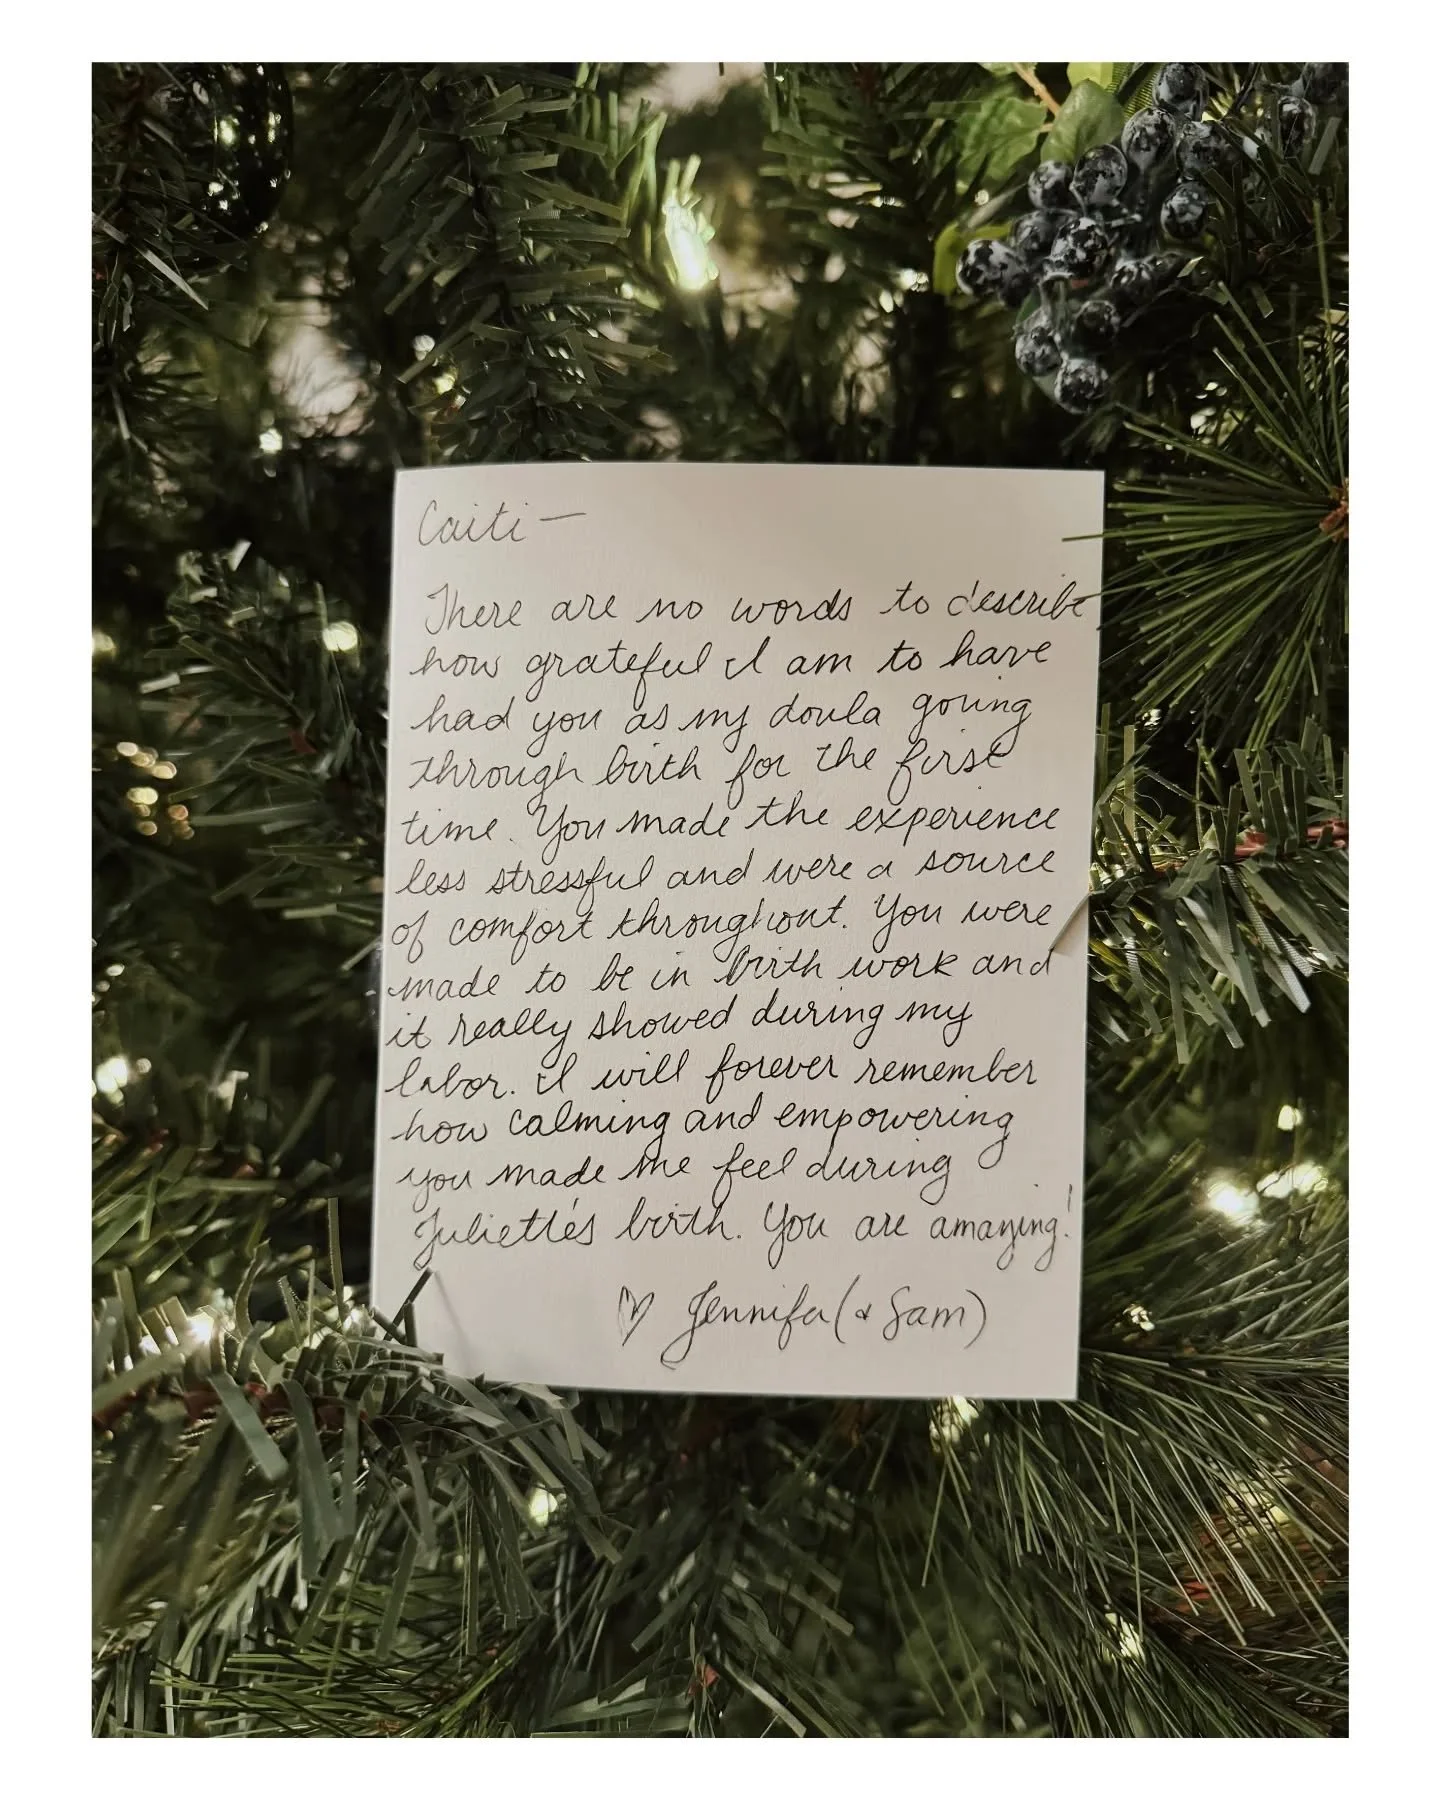 Caiti —
There are no words to describe
how grateful I am to have
had you as my doula going
through birth for the first
time. You made the experience
less stressful and were a source
of comfort throughout. You were
made to be in birth work and
it really showed during my
labor. I will forever remember
how calming and empowering
you made me feel during
Juliette's birth. You are amazing!
♡ Jennifer (+ Sam)